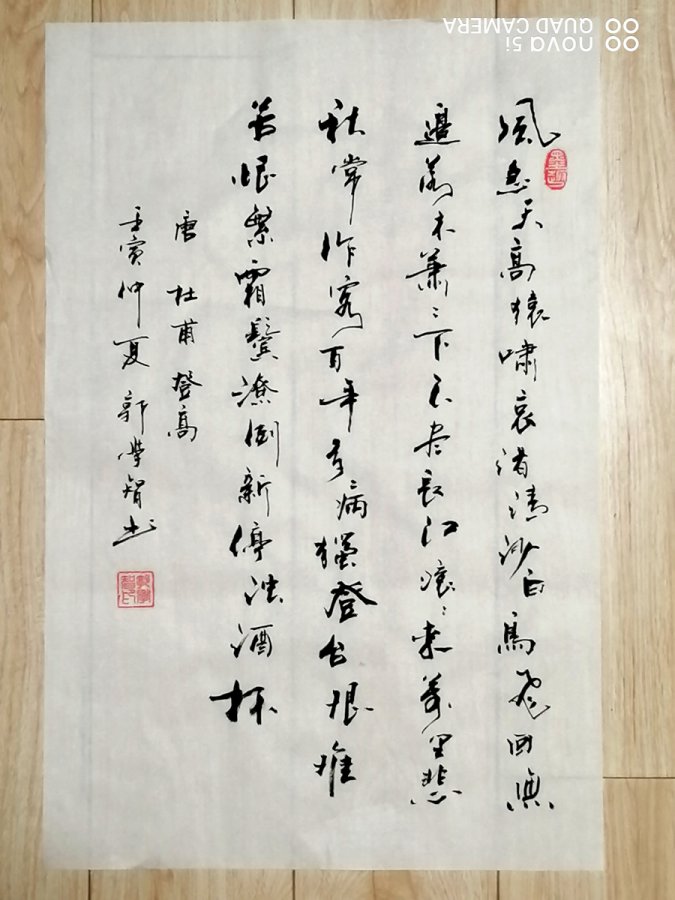 風急天高猿嘯哀渚清沙白鳥飛回無
邊落木蕭〻下不盡長江滾〻來萬里悲
秋常作客百年多病獨登台艱難
苦恨繁霜鬢潦倒新停濁酒杯
唐杜甫登高
壬寅仲夏郭學智書
郭學智印
nova 5i
QUAD CAMERA